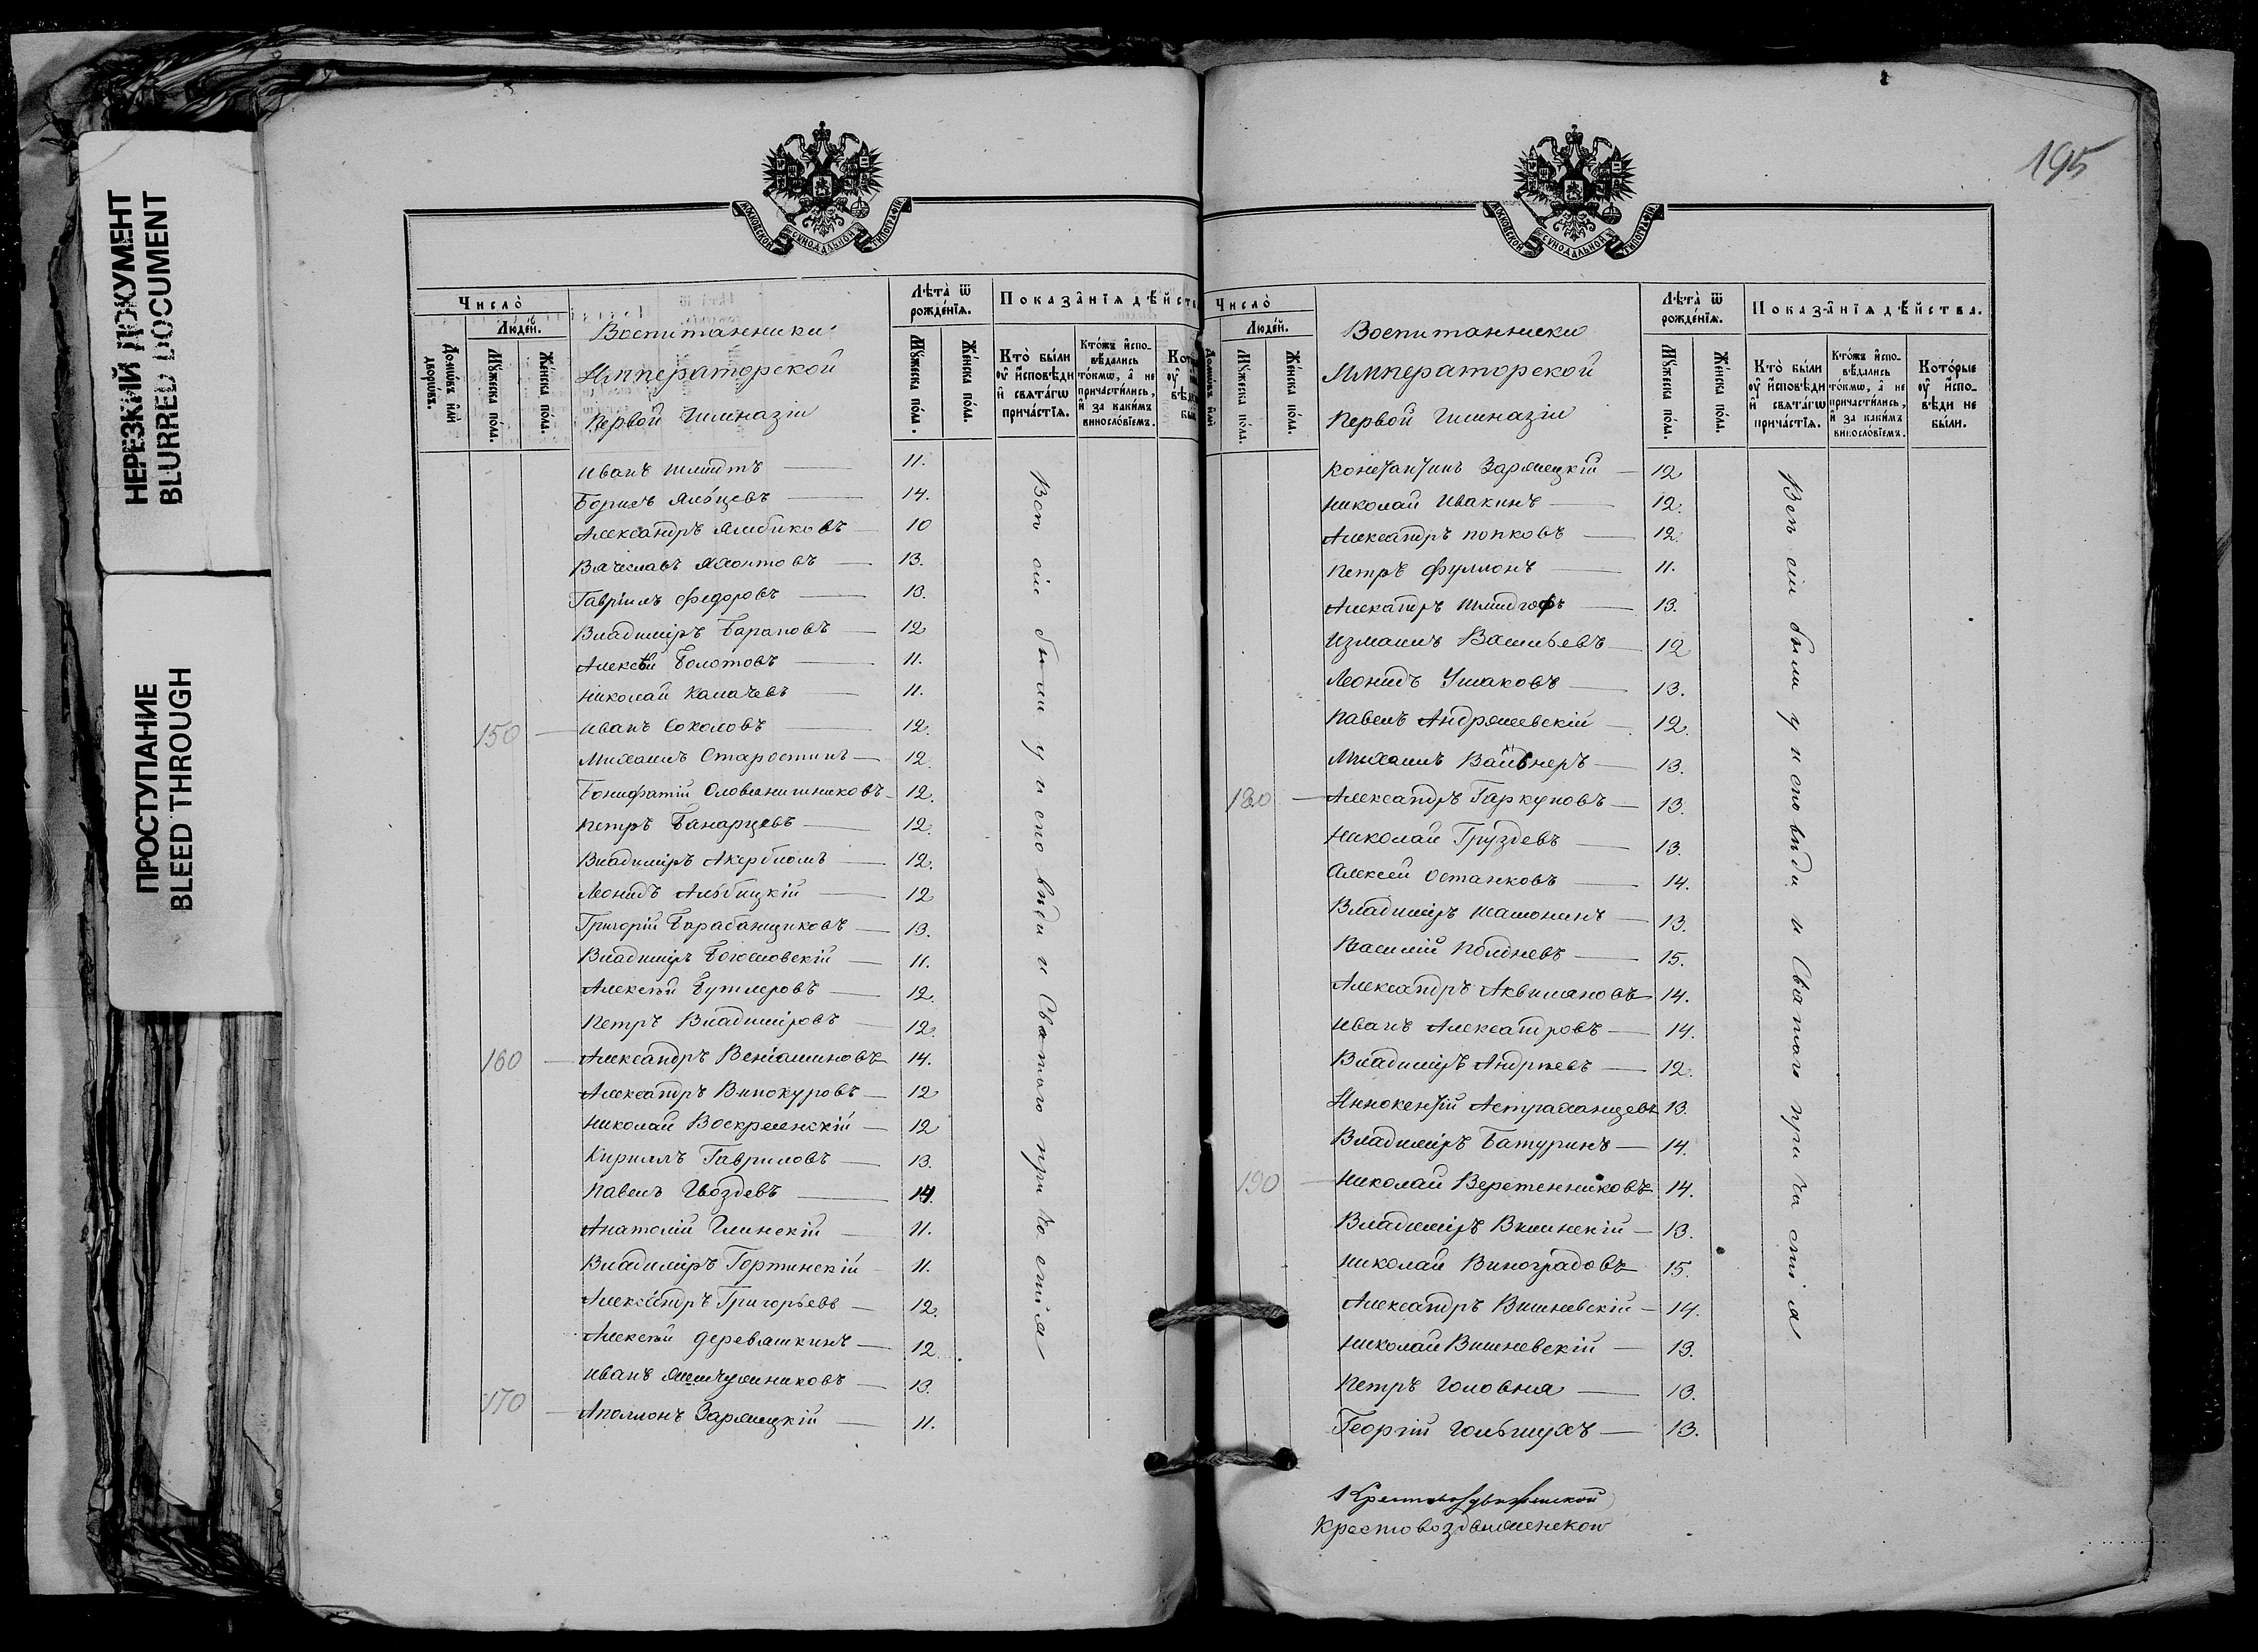 НЕРЕЗКИЙ ДОКУМЕНТ
BLURRED DOCUMENT
ПРОСТУПАНИЕ
BLEED THROUGH
МОСКОВСКОЙ СУНОДАЛЬНОЙ ТИПОГРАФІИ
Число̀
Людей.
Домѡвъ или дворѡвъ.
Мꙋжеска пола.
Женска пола.
Воспитанники
Императорской
Первой Гимназіи
Лѣта ѿ рожденїѧ.
Мꙋжеска пола.
Женска пола.
Показанїѧ дѣйст
Кто были
оу исповѣди
и свѧтагѡ
причастїѧ.
Ктожъ испо-
вѣдались
токмѡ, а не
причастились,
и за какимъ
винословїемъ.
Иванъ Шмидтъ 11.
Борисъ Яльцевъ 14.
Александръ Ямбиковъ 10
Вячеславъ Яхонтовъ 13.
Гавріилъ Федоровъ 13.
Владиміръ Барановъ 12
Алексѣй Болотовъ 11.
Николай Калачевъ 11.
150 Иванъ Соколовъ 12.
Михаилъ Старостинъ 12.
Бонифатій Оловянишниковъ 12.
Петръ Банарцевъ 12.
Владиміръ Акербломъ 12.
Леонидъ Альбицкій 12
Григорій Барабанщиковъ 13.
Владиміръ Богословскій 11.
Алексѣй Бутлеровъ 12.
Петръ Владиміровъ 12.
160 Александръ Веніаминовъ 14.
Александръ Винокуровъ 12
Николай Воскресенскій 12
Кириллъ Гавриловъ 13.
Павелъ Гвоздевъ 14.
Анатолій Глинскій 11.
Владиміръ Гортинскій 11.
Александръ Григорьевъ 12.
Алексѣй Деревяшкинъ 12.
Иванъ 13.
170 Аполлонъ Зарницкій 11.
Всѣ сіи были у исповѣди и Святаго причастія
195
МОСКОВСКОЙ СУНОДАЛЬНОЙ ТИПОГРАФІИ
Число̀
Людей.
Мꙋжеска пола.
Женска пола.
Воспитанники
Императорской
Первой Гимназіи
Лѣта ѿ рожденїѧ.
Мꙋжеска пола.
Женска пола.
Показанїѧ дѣйства.
Кто были
оу исповѣди
и свѧтагѡ
причастїѧ.
Ктожъ испо-
вѣдались
токмѡ, а не
причастились,
и за какимъ
винословїемъ.
Которые
оу испо-
вѣди не
были.
Константинъ Зарницкій 12
Николай Ивакинъ 12.
Александръ Попковъ 12.
Петръ Фуллонъ 11.
Александръ Шмидгофъ 13.
Измаилъ Васильевъ 12
Леонидъ Ушаковъ 13.
Павелъ Андряшевскій 12.
Михаилъ 13.
180 Александръ Гаркуновъ 13.
Николай Груздевъ 13.
Алексей Останковъ 14.
Владиміръ Шамонинъ 13.
Василій Полдневъ 15.
Александръ Аквиляновъ 14.
Иванъ Александровъ 14.
Владиміръ Андреевъ 12.
Иннокентій Астраханцевъ 13.
Владиміръ Батуринъ 14.
190 Николай Веретенниковъ 14.
Владиміръ Вилинскій 13.
Николай Виноградовъ 15.
Александръ Вишневскій 14.
Николай Вишневскій 13.
Петръ Головня 13.
Георгій Гольшухъ 13.
Всѣ сіи были у исповѣди и Святаго причастія
Крестовоздвиженской
Крестовоздвиженской